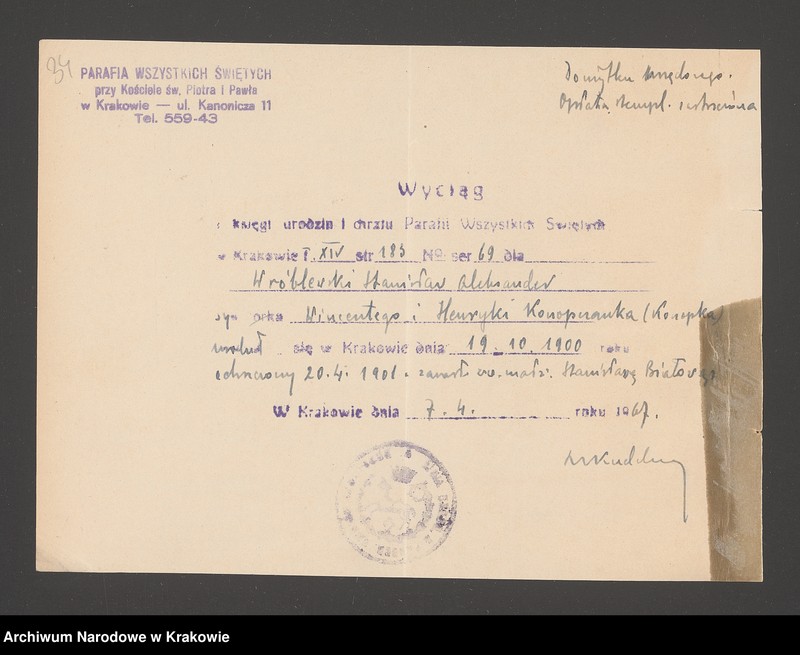 34
PARAFIA WSZYSTKICH ŚWIĘTYCH
przy Kościele św. Piotra i Pawła
w Krakowie — ul. Kanonicza 11
Tel. 559-43
Do użytku urzędowego.
Opłata stempl. uiszczona
Wyciąg
z księgi urodzin i chrztu Parafii Wszystkich Świętych
w Krakowie T. XIV str 183 No ser 69 dla
Wróblewski Stanisław Aleksander
syn Wincentego i Henryki Konopczanka (Konopka)
urodził się w Krakowie dnia 19.10.1900 roku
ochrzczony 20.4.1901. zawarł zw. małż. Stanisławą
W Krakowie dnia 7.4. roku 1967.
Archiwum Narodowe w Krakowie